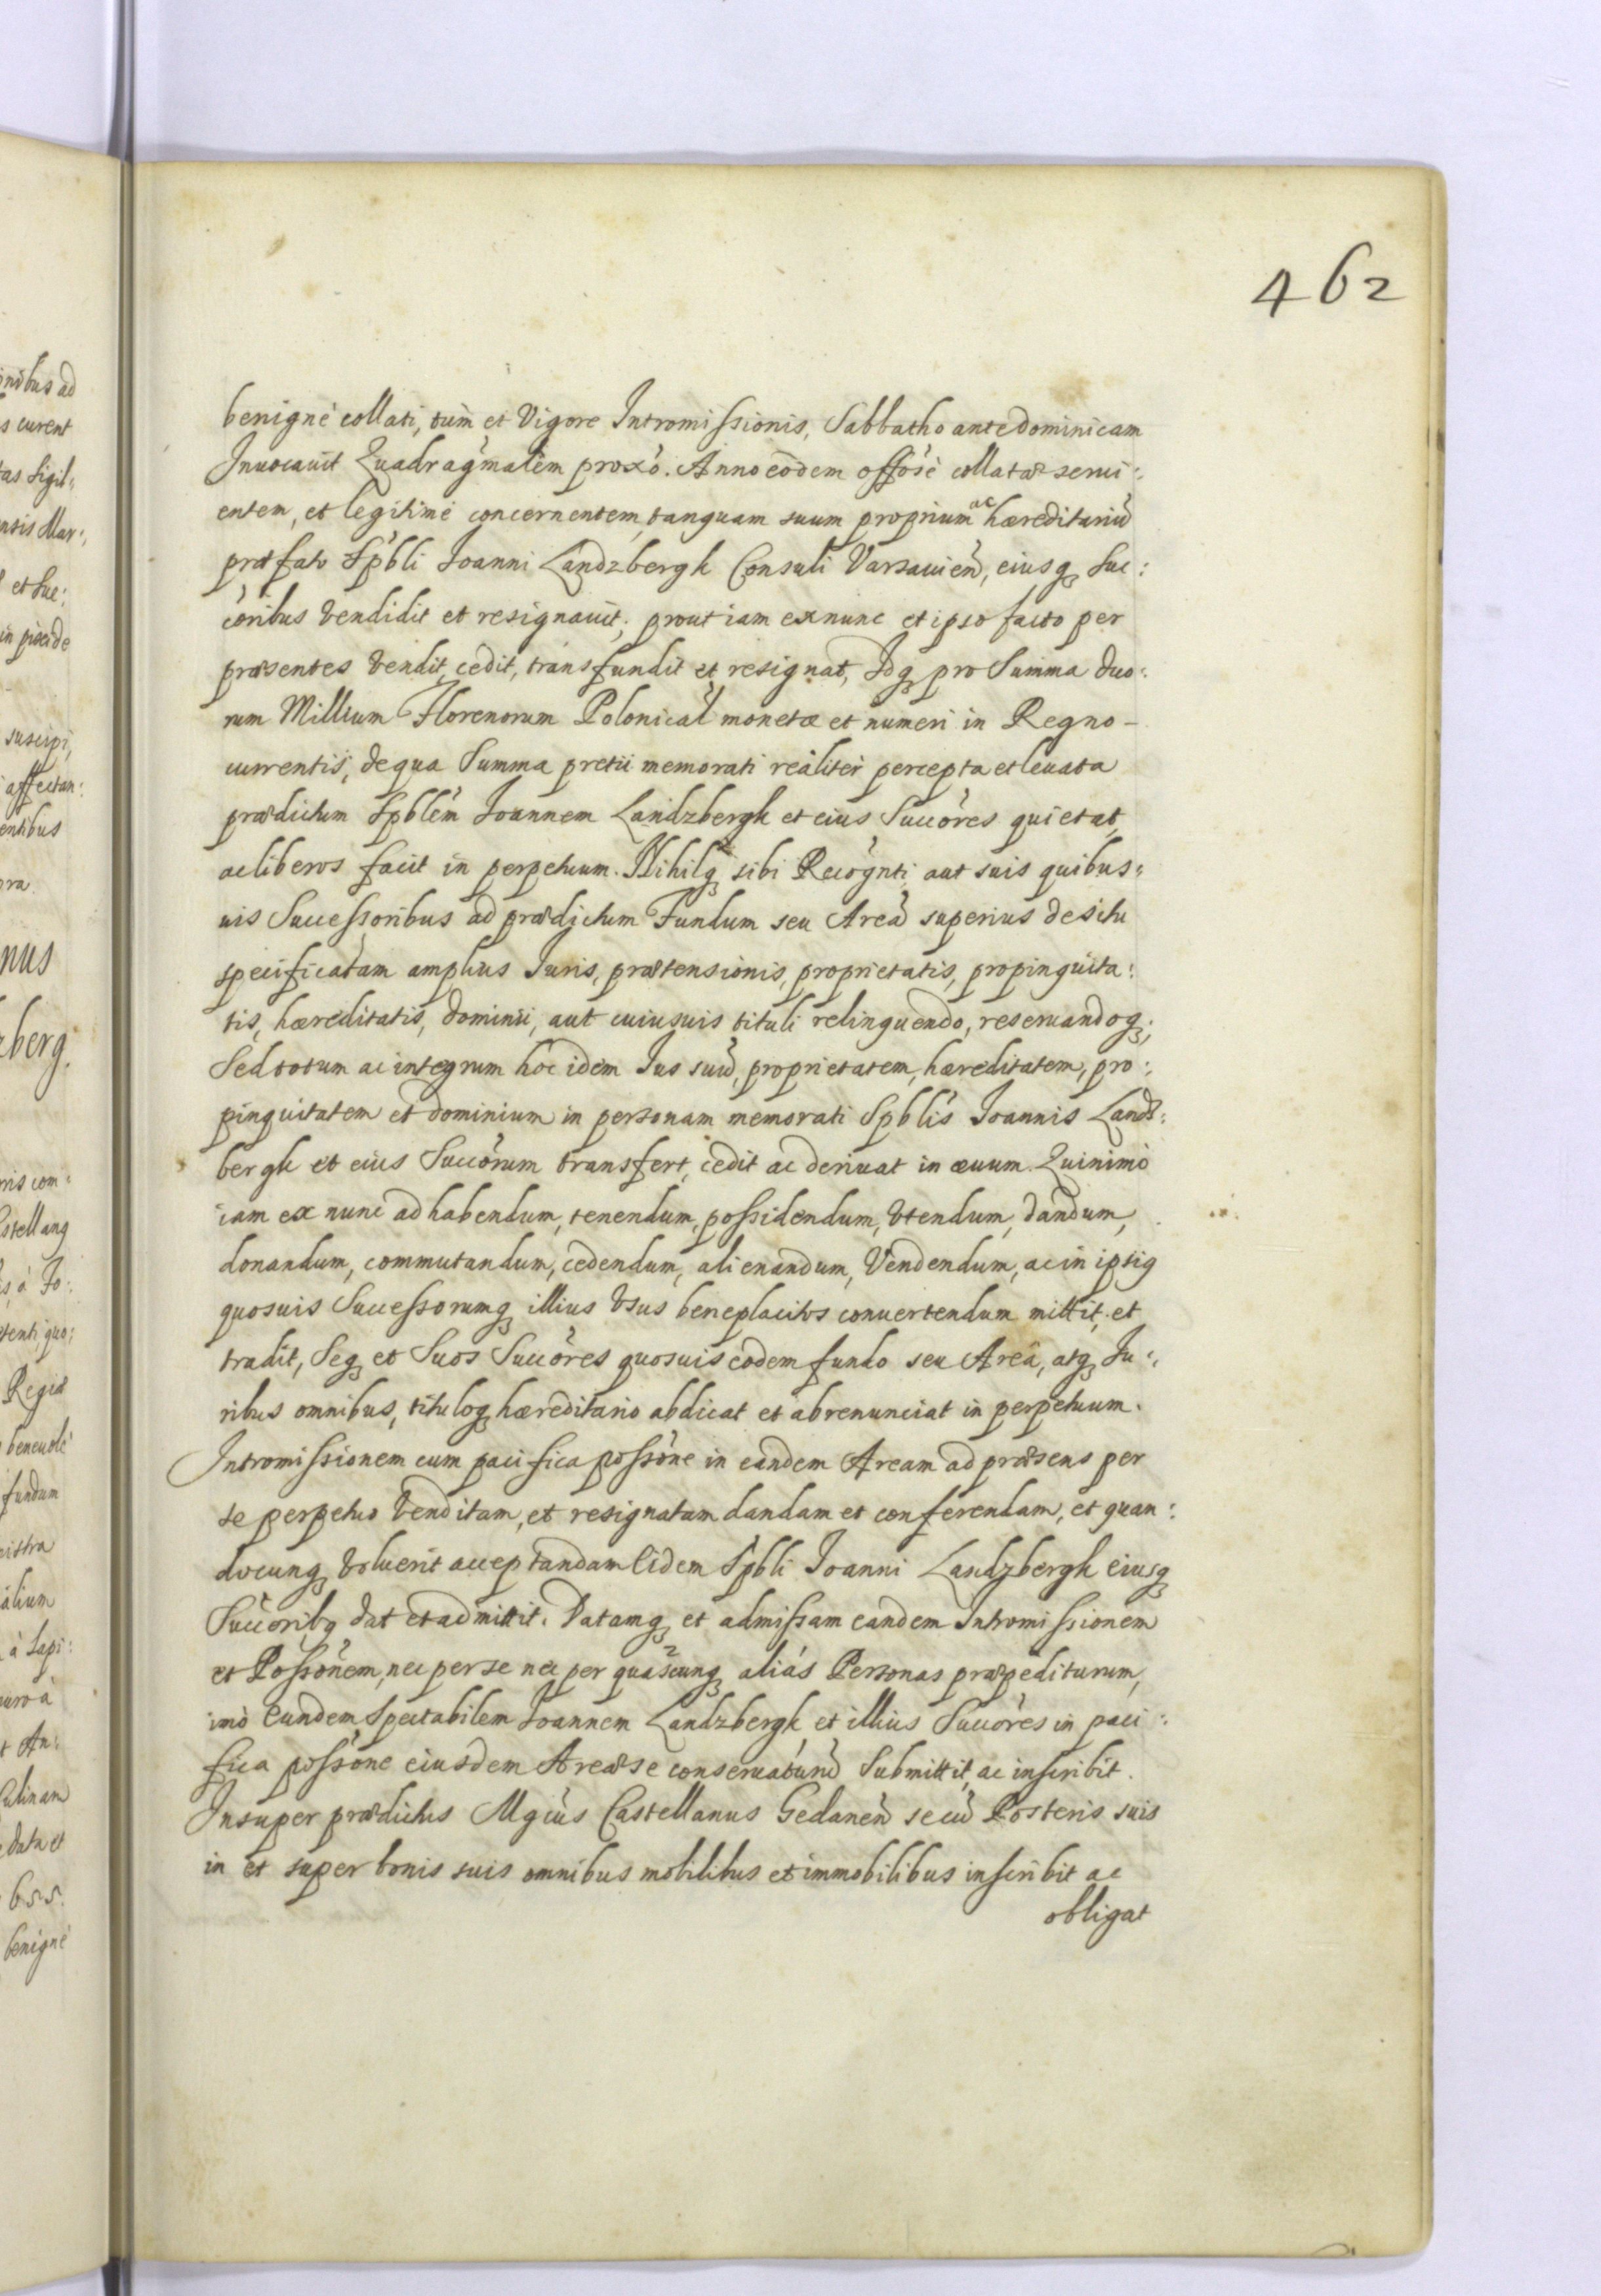 462
benignè collati, tum et Vigore Intromissionis, Sabbatho ante dominicam
Inuocauit Quadragmalem proxo. Anno eodem offose collatæ serui:
entem, et legitimè concernentem, tanquam suum proprium ac hæreditariu
præfato Spbli Joanni Landzbergk Consuli Varsauien, eiusq Suc:
coribus Vendidit et resignauit; prout iam ex nunc et ipso facto per
præsentes Vendit, cedit, transfundit et resignat, Idq pro Summa duo:
rum Millium Florenorum Polonical monetæ et numeri in Regno -
currentis, de qua Summa pretii memorati realiter percepta et leuata
prædictum Spblem Joannem Landzbergk et eius Succores quietat,
ac liberos facit in perpetuum. Nihilq sibi Recognti aut suis quibus:
uis Successoribus ad prædictum Fundum seu Area superius de situ
specificatam amplius Juris, prætensionis, proprietatis, propinquita:
tis, hæreditatis, dominii, aut cuiusuis tituli relinquendo, reseruandoq;
Sed totum ac integrum hoc idem Jus suu, proprietatem, hæreditatem, pro:
pinquitatem et dominium in personam memorati Spblis Joannis Landz:
bergk et eius Succorum transfert, cedit ac deriuat in æuum. Quinimo
iam ex nunc ad habendum, tenendum, possidendum, Vtendum, dandum,
donandum, commutandum, cedendum, alienandum, Vendendum, ac in ipsiq
quosuis Successorumq illius Vsus beneplacitos conuertendum mittit, et
tradit, Seq et Suos Succores quosuis eodem fundo seu Areâ, atq Ju:
ribus omnibus, tituloq hæreditario abdicat et abrenunciat in perpetuum.
Intromissionem cum pacifica possone in eandem Aream ad præsens per
se perpetuo Venditam, et resignatam dandam et conferendam, et quan:
docunq Voluerit acceptandam Eidem Spbli Joanni Landzbergk eiusq
Succoribq dat et admittit. Datamq et admissam eandem Intromissionem
et Possonem, nec per se nec per quascunq aliás Personas præpediturum,
imò Eundem Spectabilem Joannem Landzbergk, et illius Succores in paci:
fica possone eiusdem Areæ se conseruaturu Submittit, ac inscribit.
Insuper prædictus Mgcus Castellanus Gedanen se cu Posteris suis
in et super bonis suis omnibus mobilibus et immobilibus inscribit ac
obligat